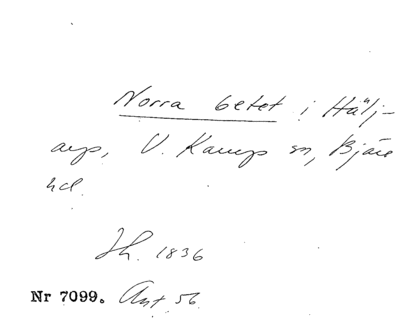 Norra betet i Hälj-
arp, V. Karup sn, Bjäre
hd.
Jh. 1836
Nr 7099. Ant 56.